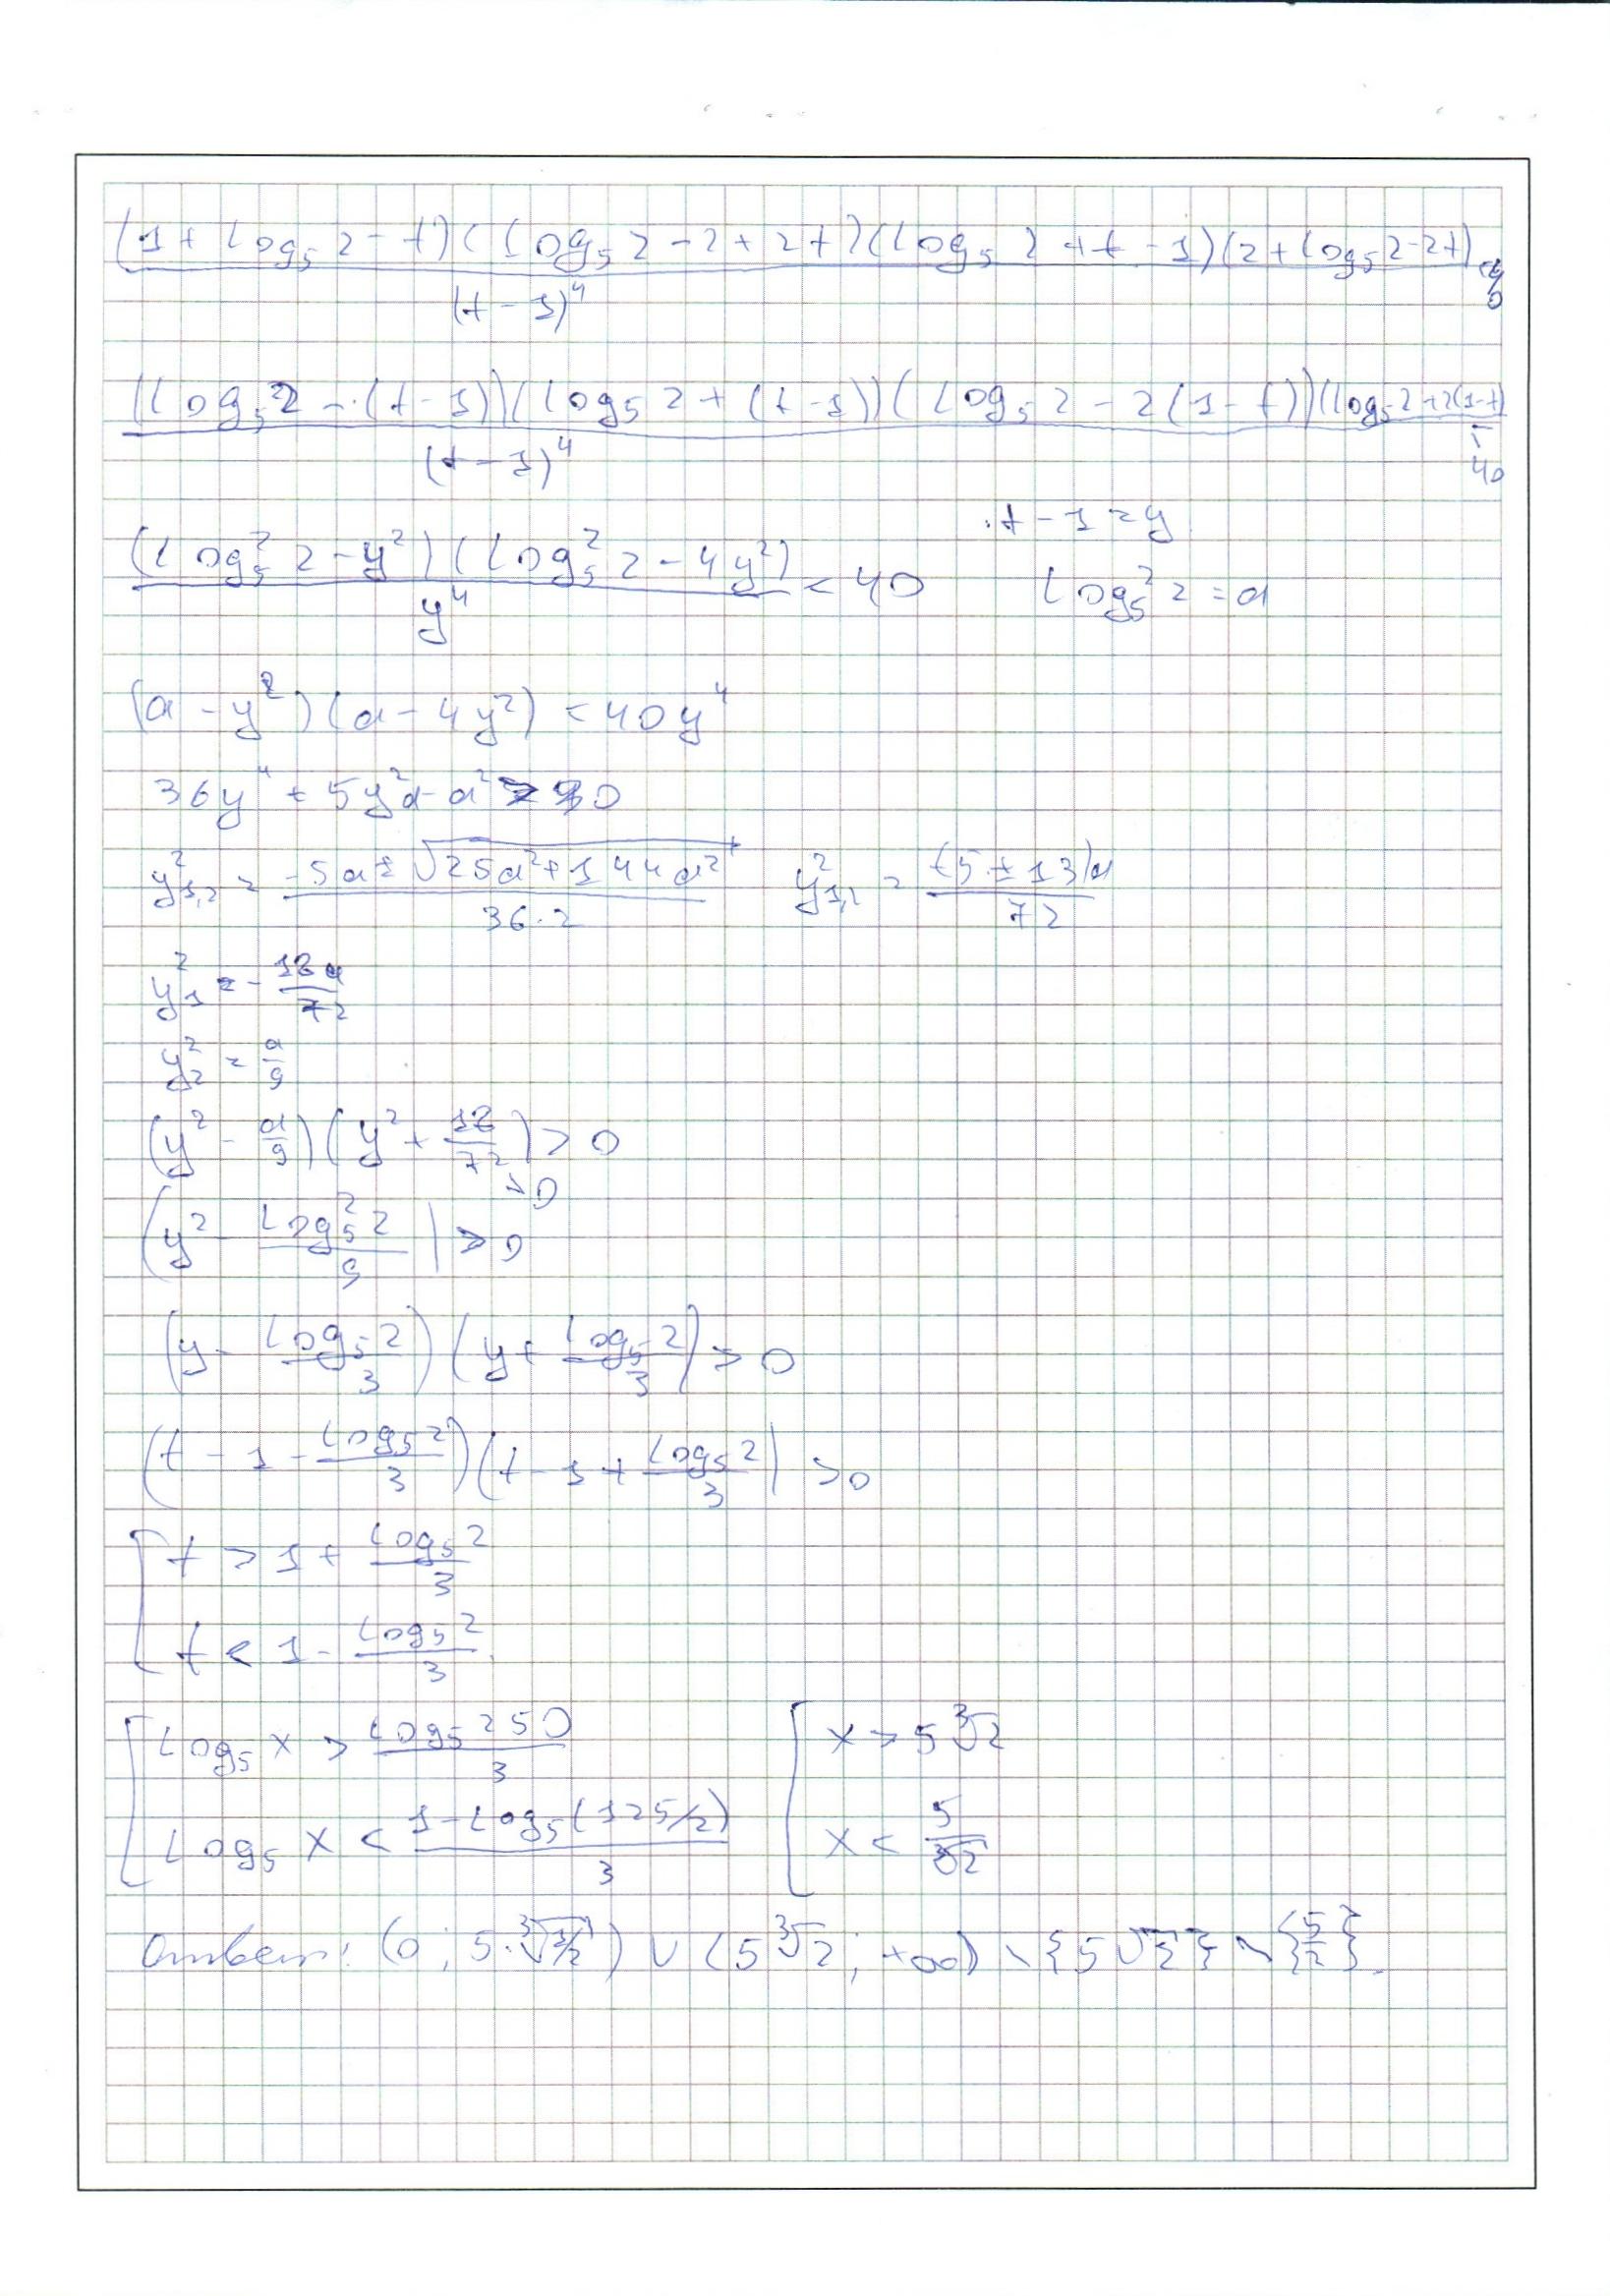 (1 + log₅ 2 - t)(log₅ 2 - 2 + 2t)(log₅ 2 + t - 1)(2 + log₅ 2 - 2t) / (t - 1)⁴ < 40
(log₅ 2 - (t - 1))(log₅ 2 + (t - 1))(log₅ 2 - 2(1 - t))(log₅ 2 + 2(1 - t) / (t - 1)⁴ < 40
t - 1 = y
(log₅² 2 - y²)(log₅² 2 - 4y²) / y⁴ < 40 log₅² 2 = a
(a - y²)(a - 4y²) < 40y⁴
36y⁴ + 5y²a - a² > 0
y²₁,₂ = (-5a ± √(25a² + 144a²)) / (36·2) y²₁,₂ = (-5 ± 13)a / 72
y₁² = - 18a/72
y₂² = a/9
(y² - a/9)(y² + 18/72) > 0
> 0
(y² - log₅² 2 / 9) > 0
(y - log₅ 2 / 3)(y + log₅ 2 / 3) > 0
(t - 1 - log₅ 2 / 3)(t - 1 + log₅ 2 / 3) > 0
[ t > 1 + log₅ 2 / 3
t < 1 - log₅ 2 / 3
[ log₅ x > log₅ 250 / 3 [ x > 5∛2
log₅ x < 1 - log₅ (125/2) / 3 x < 5/∛2
Ответ: (0; 5·∛(1/2)) ∪ (5∛2; +∞) \ {5√2} \ {5/2}.